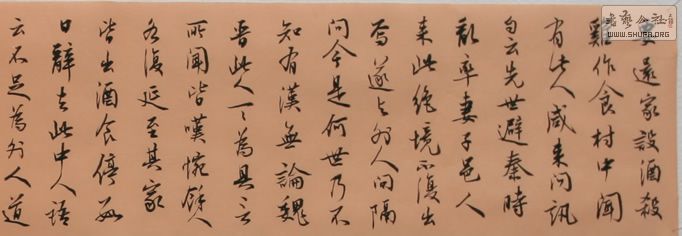 要還家設酒殺
雞作食村中聞
有此人咸來問訊
自云先世避秦時
亂率妻子邑人
來此絕境不復出
焉遂与外人間隔
問今是何世乃不
知有漢無論魏
晉此人一一為具言
所聞皆嘆惋餘人
各復延至其家
皆出酒食停數
日辭去此中人語
云不足為外人道
書藝公社
WWW.SHUFA.ORG